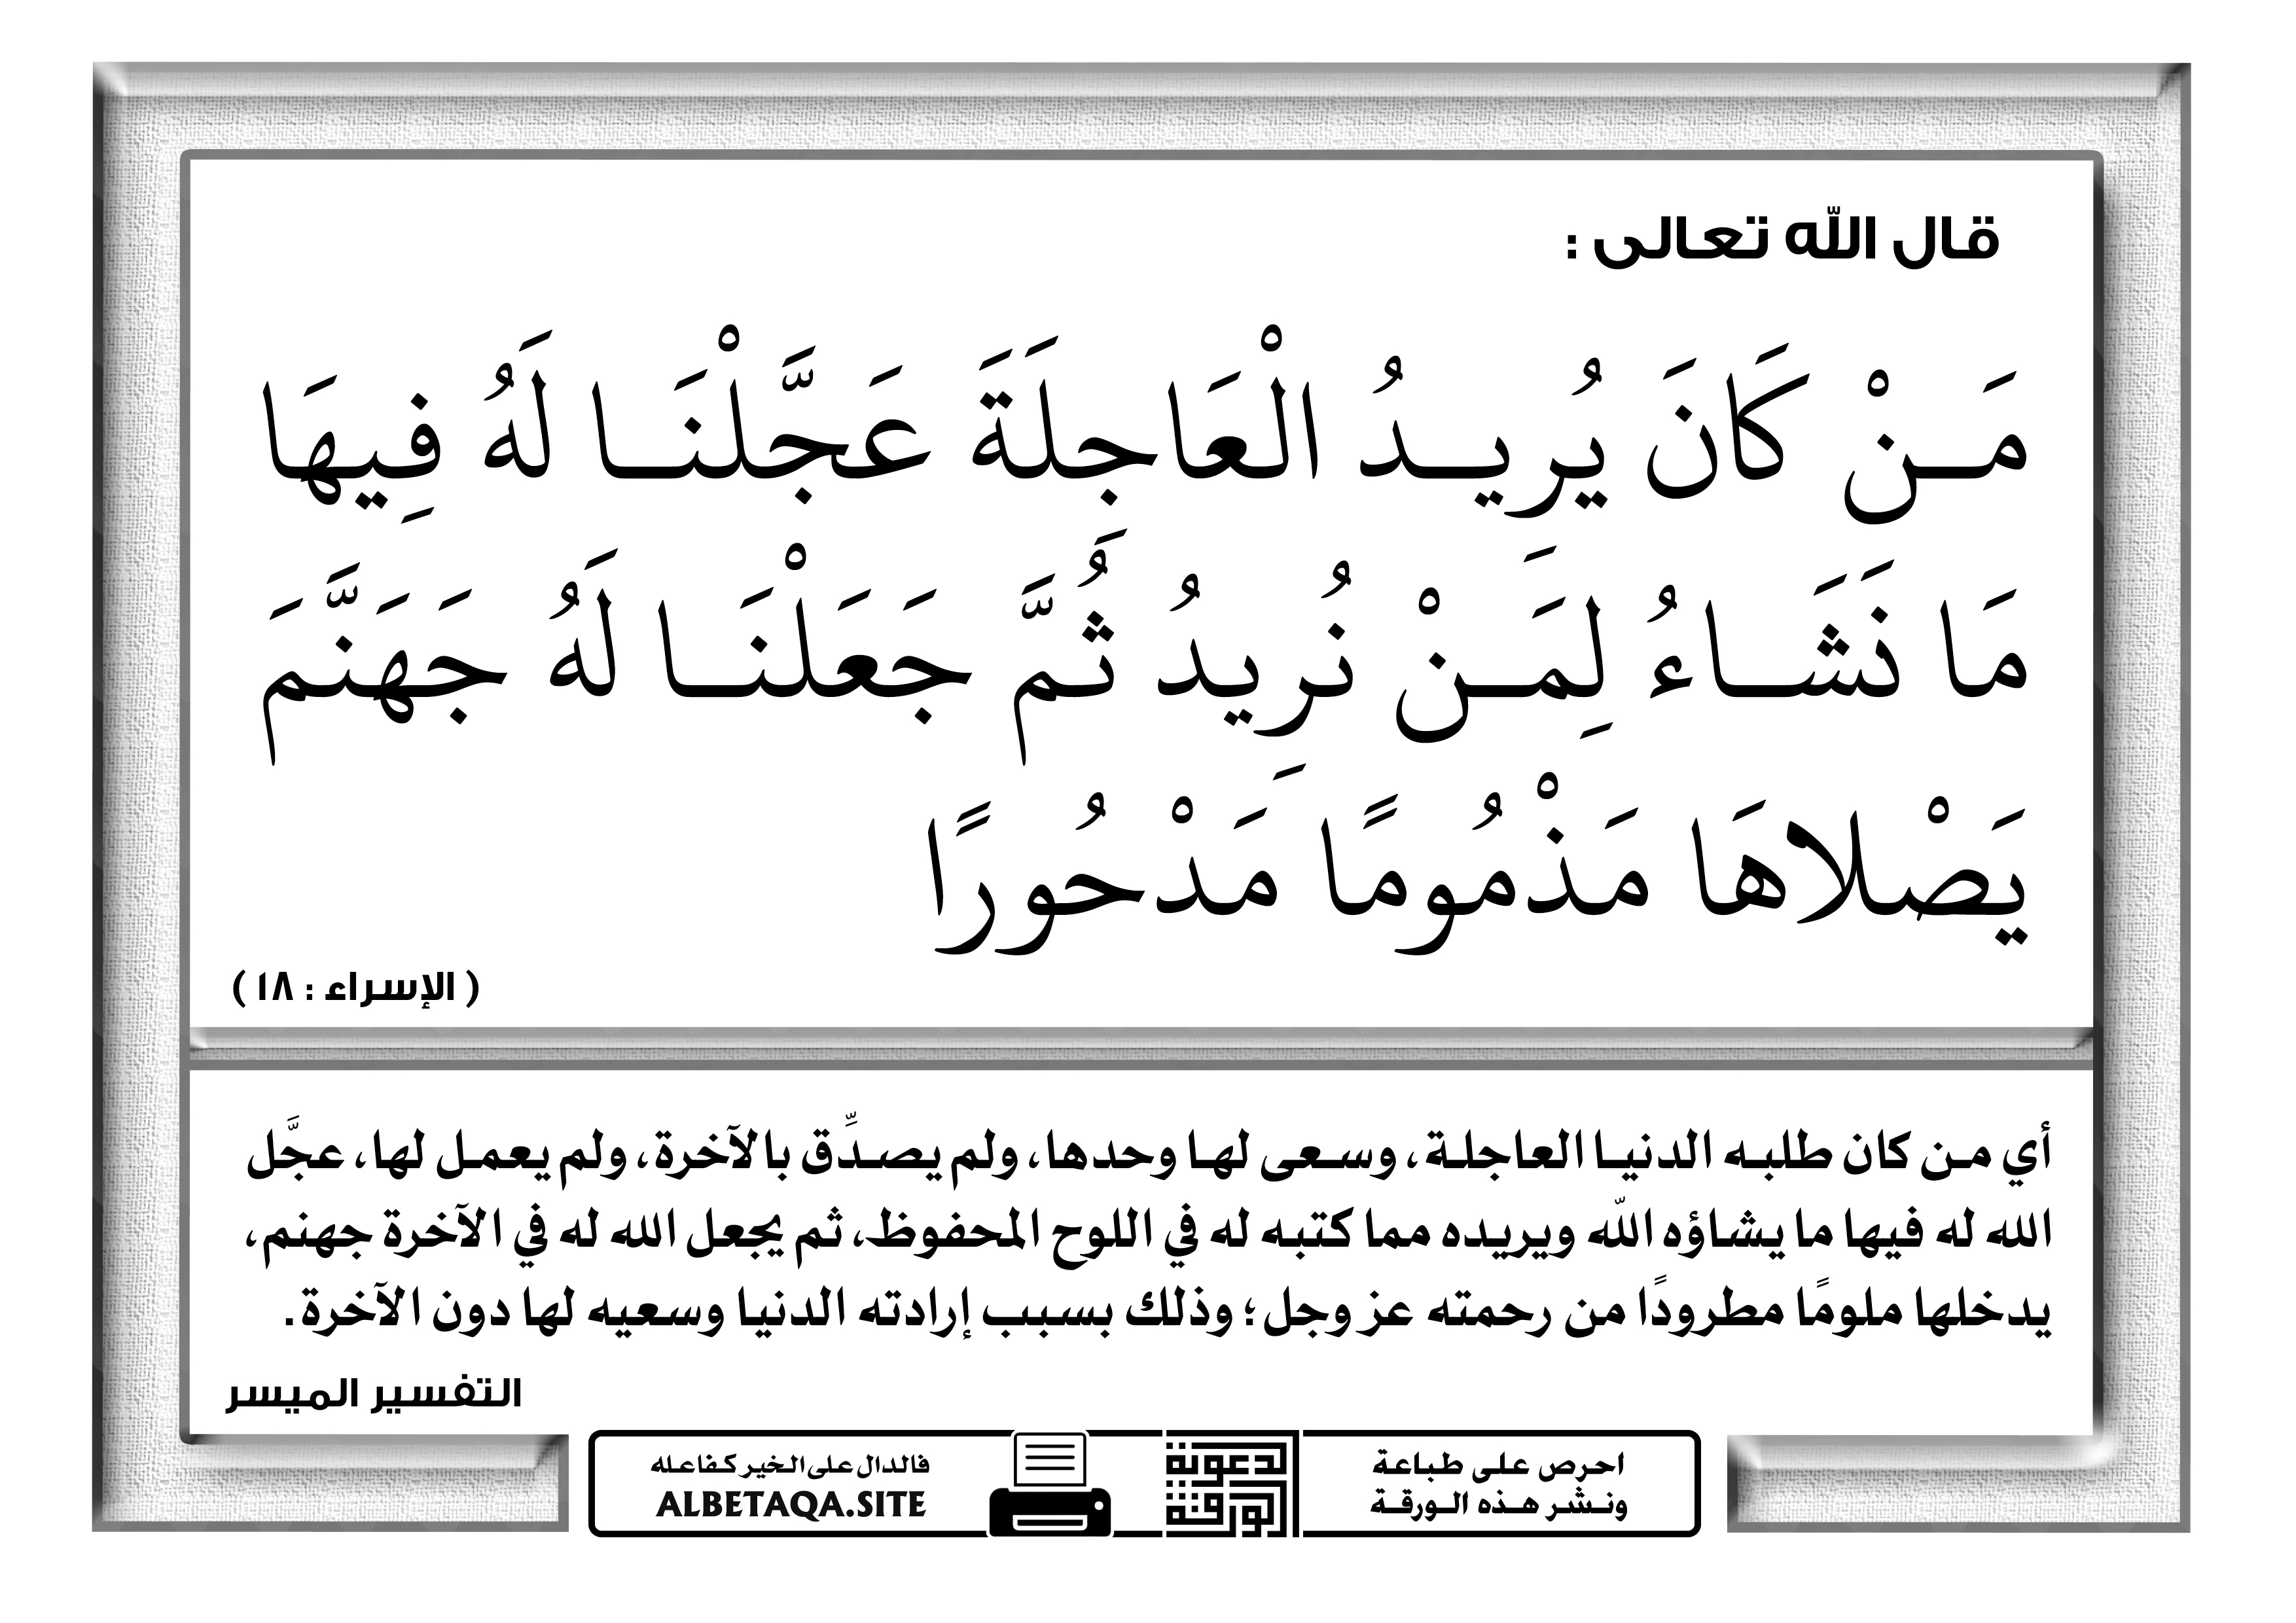 قال الله تعالى :
مَنْ كَانَ يُرِيدُ الْعَاجِلَةَ عَجَّلْنَا لَهُ فِيهَا
مَا نَشَاءُ لِمَنْ نُرِيدُ ثُمَّ جَعَلْنَا لَهُ جَهَنَّمَ
يَصْلاهَا مَذْمُومًا مَدْحُورًا
( الإسراء : ١٨ )
أي من كان طلبه الدنيا العاجلة، وسعى لها وحدها، ولم يصدِّق بالآخرة، ولم يعمل لها، عجَّل
الله له فيها ما يشاؤه الله ويريده مما كتبه له في اللوح المحفوظ، ثم يجعل الله له في الآخرة جهنم،
يدخلها ملومًا مطرودًا من رحمته عز وجل؛ وذلك بسبب إرادته الدنيا وسعيه لها دون الآخرة.
التفسير الميسر
احرص على طباعة
ونشر هذه الورقة
الورقة
الدعوية
فالدال على الخير كفاعله
ALBETAQA.SITE